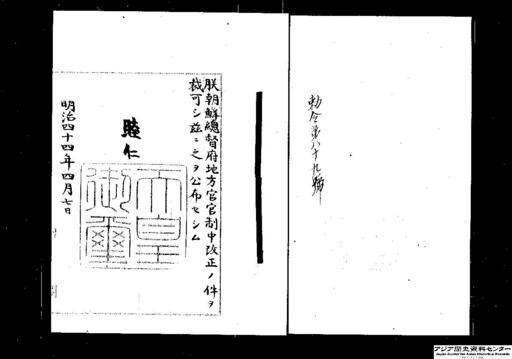 勅令第八十九號
朕朝鮮總督府地方官官制中改正ノ件ヲ
裁可シ茲ニ之ヲ公布セシム
睦仁
天皇
御璽
明治四十四年四月七日
アジア歴史資料センター
Japan Center for Asian Historical Records